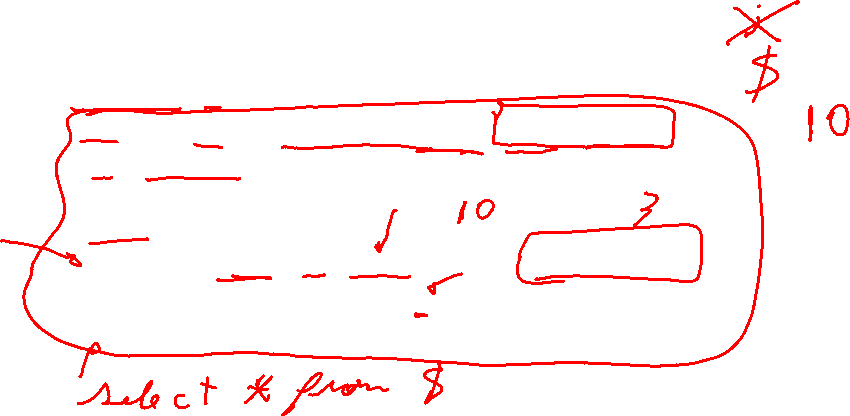 $
10
10 3
select * from $